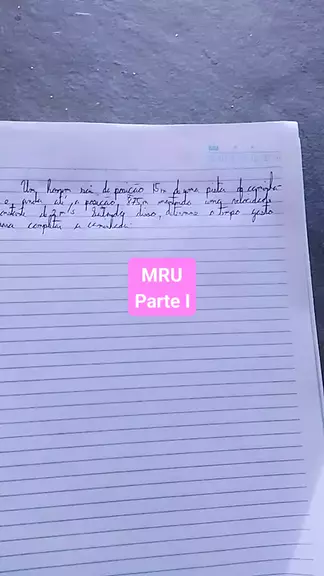 Um homem sai da posição 15m de uma pista de caminha-
e anda até a posição 875m mantendo uma velocidade
constante de 2m/s. Sabendo disso, determine o tempo gasto
para completar a caminhada.
MRU
Parte I